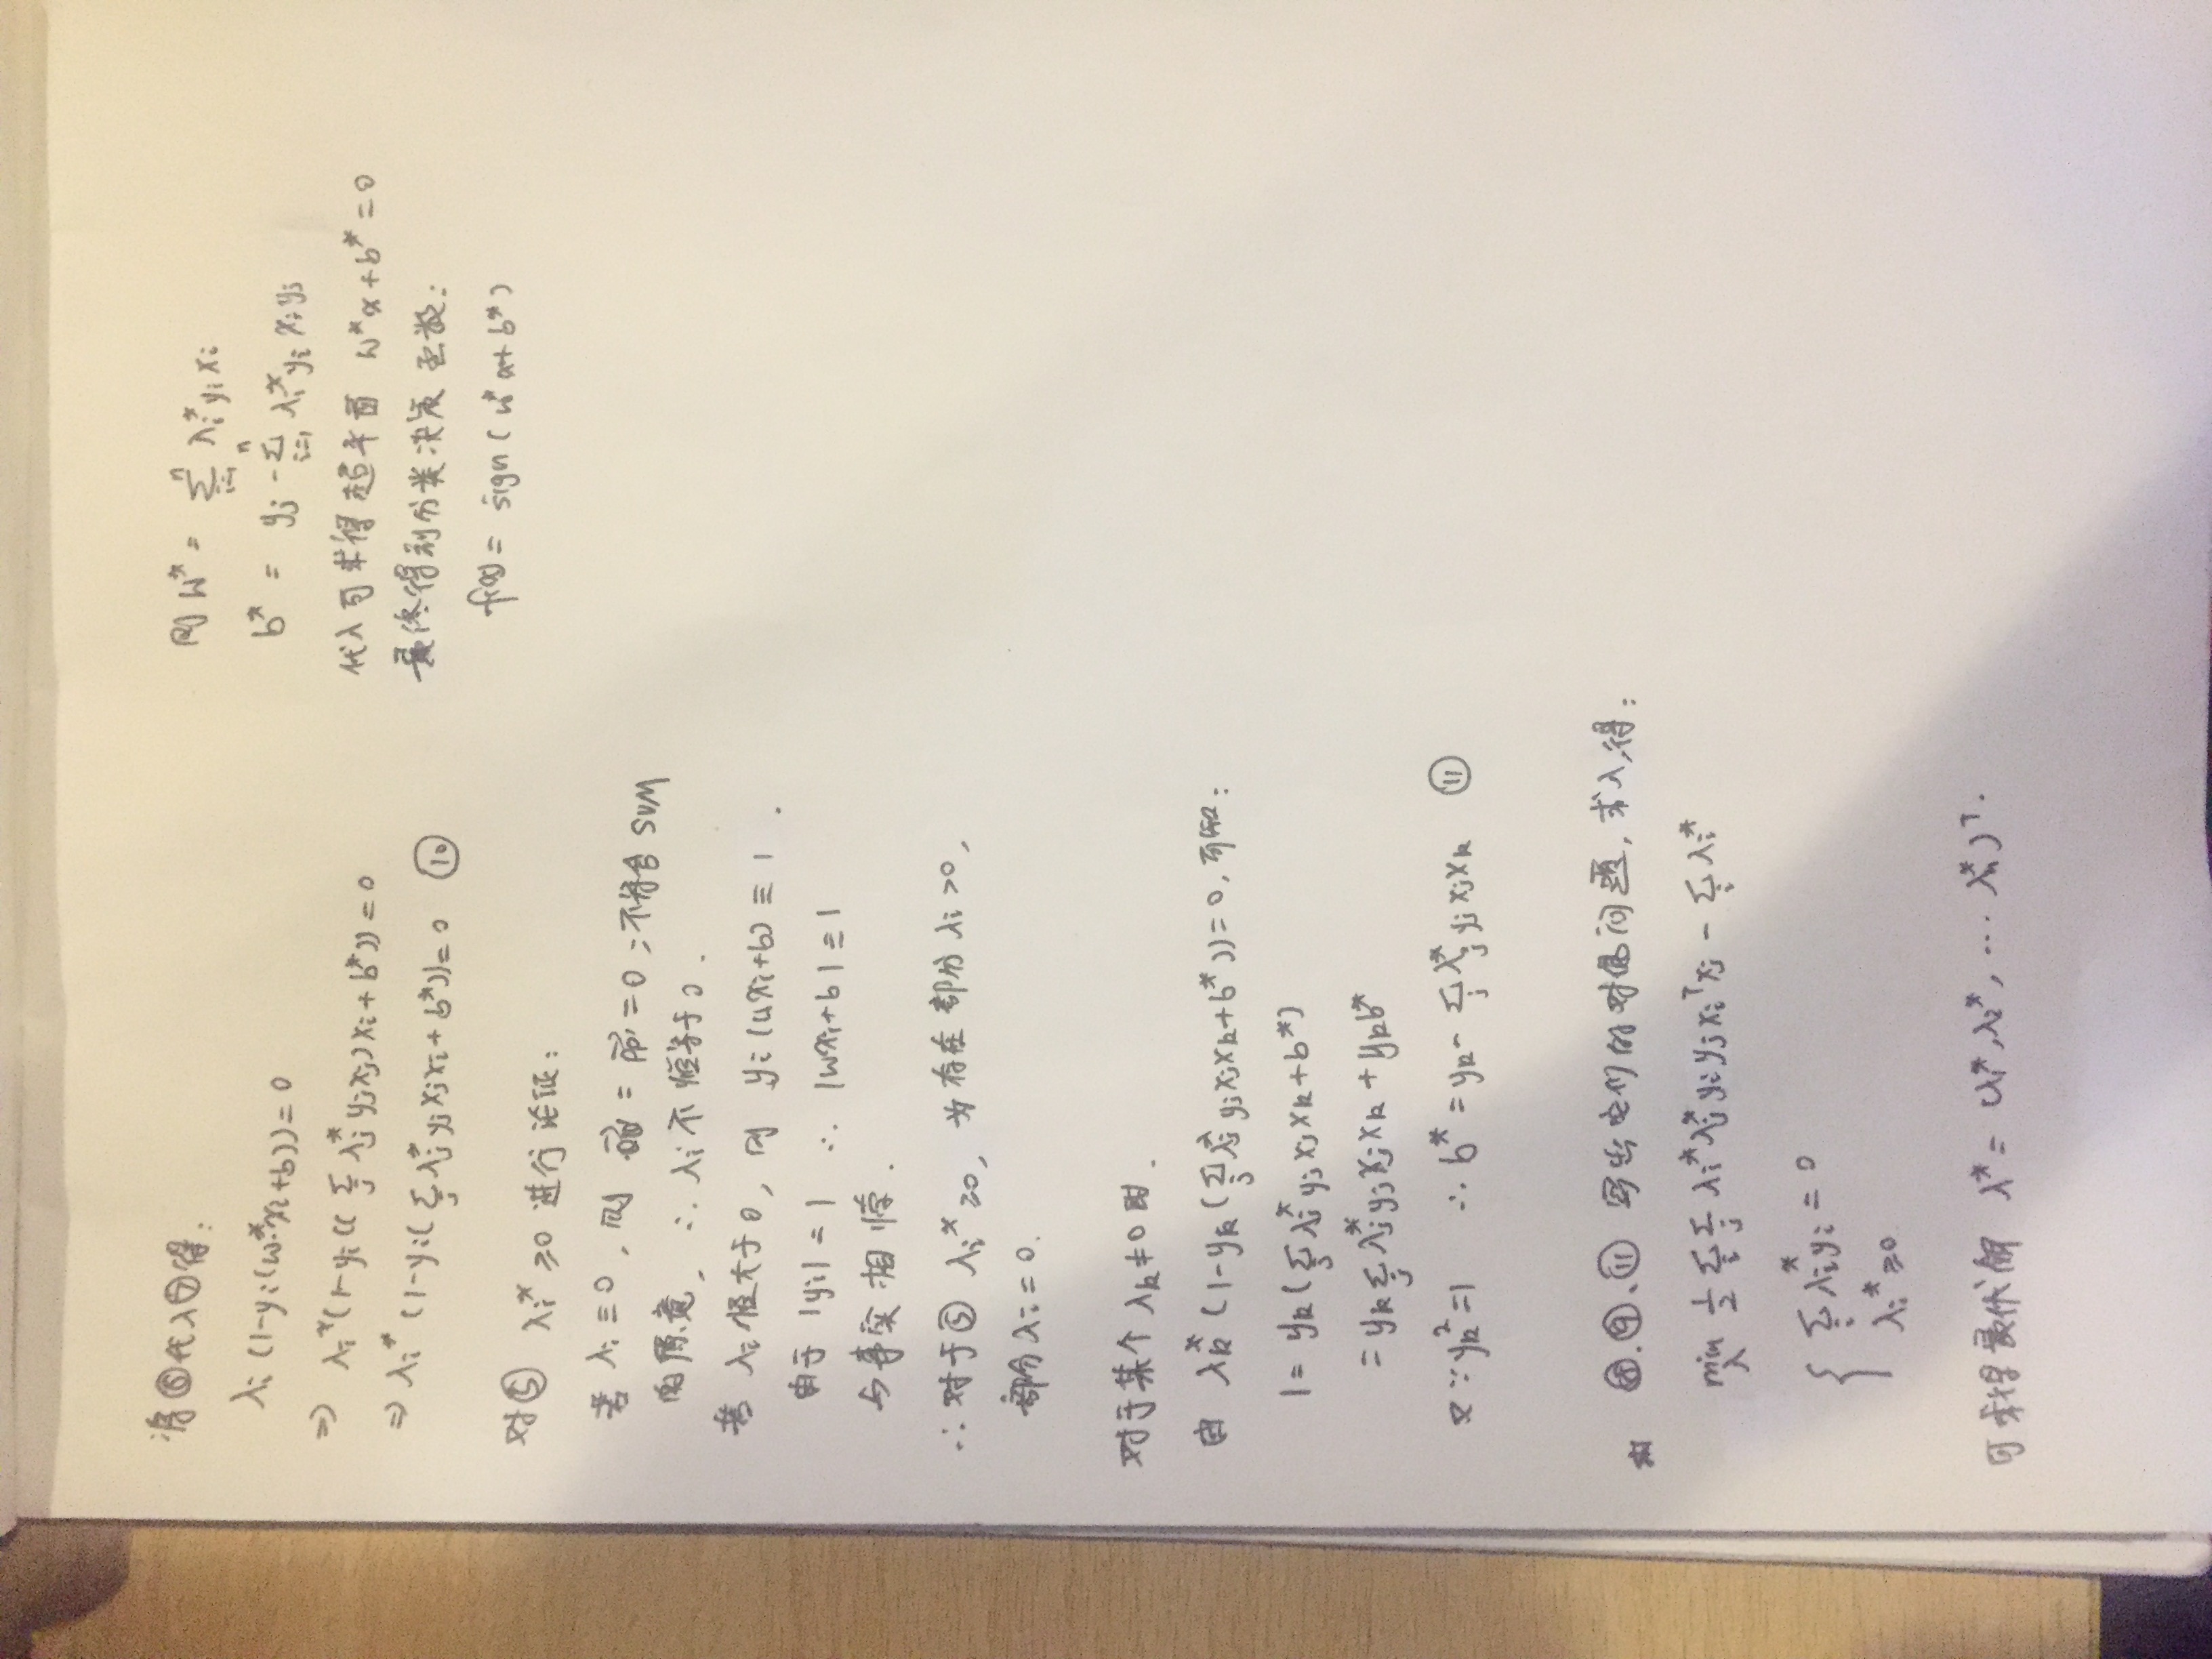 将⑥代入⑦得：
λi (1-yi(w*xi+b))=0
⇒ λi*(1-yi((∑j λj* yjxj)xi+b*))=0
⇒ λi* (1-yi(∑j λj* yjxjxi+b*))=0 ⑩
对⑤ λi* ≥0 进行论证：
若 λi ≡0, 则 = PP' = 0 ; 不符合 SVM
的原意, ∴ λi 不恒等于0.
若 λi 恒大于0, 则 yi(wxi+b) ≡ 1 .
由于 |yi| = 1 ∴ |wxi+b| ≡ 1
与事实相悖.
∴ 对于⑤ λi* ≥0, 为存在部分 λi >0,
部分 λi = 0.
对于某个 λk≠0 时.
由 λk* (1-yk(∑j λj* yjxjxk+b*))=0, 可知：
1 = yk(∑j λj* yjxjxk+b*)
= yk∑j λj* yjxjxk + ykb*
又∵yk²=1 ∴ b* = yk- ∑j λj* yjxjxk ⑪
由 ⑧.⑨、⑪ 写出它们的对偶问题, 求λ,得：
min λ 1/2 ∑i ∑j λi* λj* yi yj xiᵀxj - ∑i λi*
{ ∑i λi* yi = 0
λi* ≥0
可求得最优解 λ* = (λ1*, λ2*, ... λn*)ᵀ.
则 w* = ∑i=1n λi* yi xi
b* = yj -∑i=1n λi* yi xi yj
代入可求得超平面 w*x+b*=0
最终得到分类决策函数：
f(x) = sign(w*x+b*)